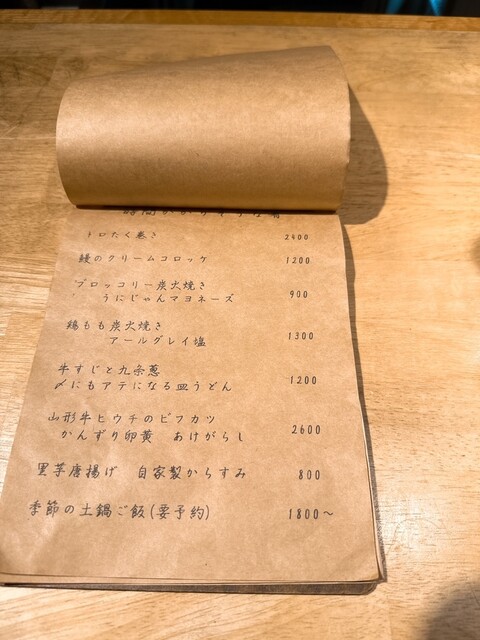 時間がかかりそうな者
トロたく巻き 2400
鰻のクリームコロッケ 1200
ブロッコリー炭火焼き
うにじゃんマヨネーズ 900
鶏もも炭火焼き
アールグレイ塩 1300
牛すじと九条葱
〆にもアテになる皿うどん 1200
山形牛ヒウチのビフカツ
かんずり卵黄 あけがらし 2600
里芋唐揚げ 自家製からすみ 800
季節の土鍋ご飯(要予約) 1800～